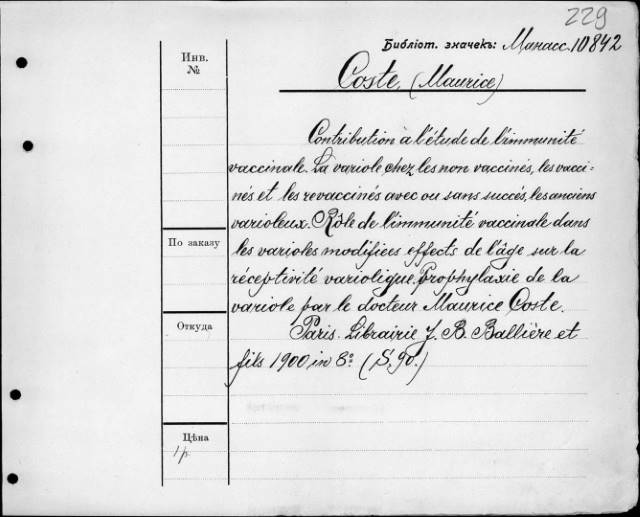 229
Библіот. значекъ: Манасс. 10842
Инв.
№
Coste, (Maurice)
Contribution à l'étude de l'immunité
vaccinale. La variole chez les non vaccinés, les vacci-
nés et les revaccinés avec ou sans succés, les anciens
varioleux. Rôle de l'immunité vaccinale dans
По заказу
les varioles modifiees effects de l'âge sur la
réceptivité variolique. Prophylaxie de la
variole par le docteur Maurice Coste.
Откуда
Paris. Librairie J. B. Ballière et
fils 1900 in 8º (S. 90.)
Цѣна
1 р